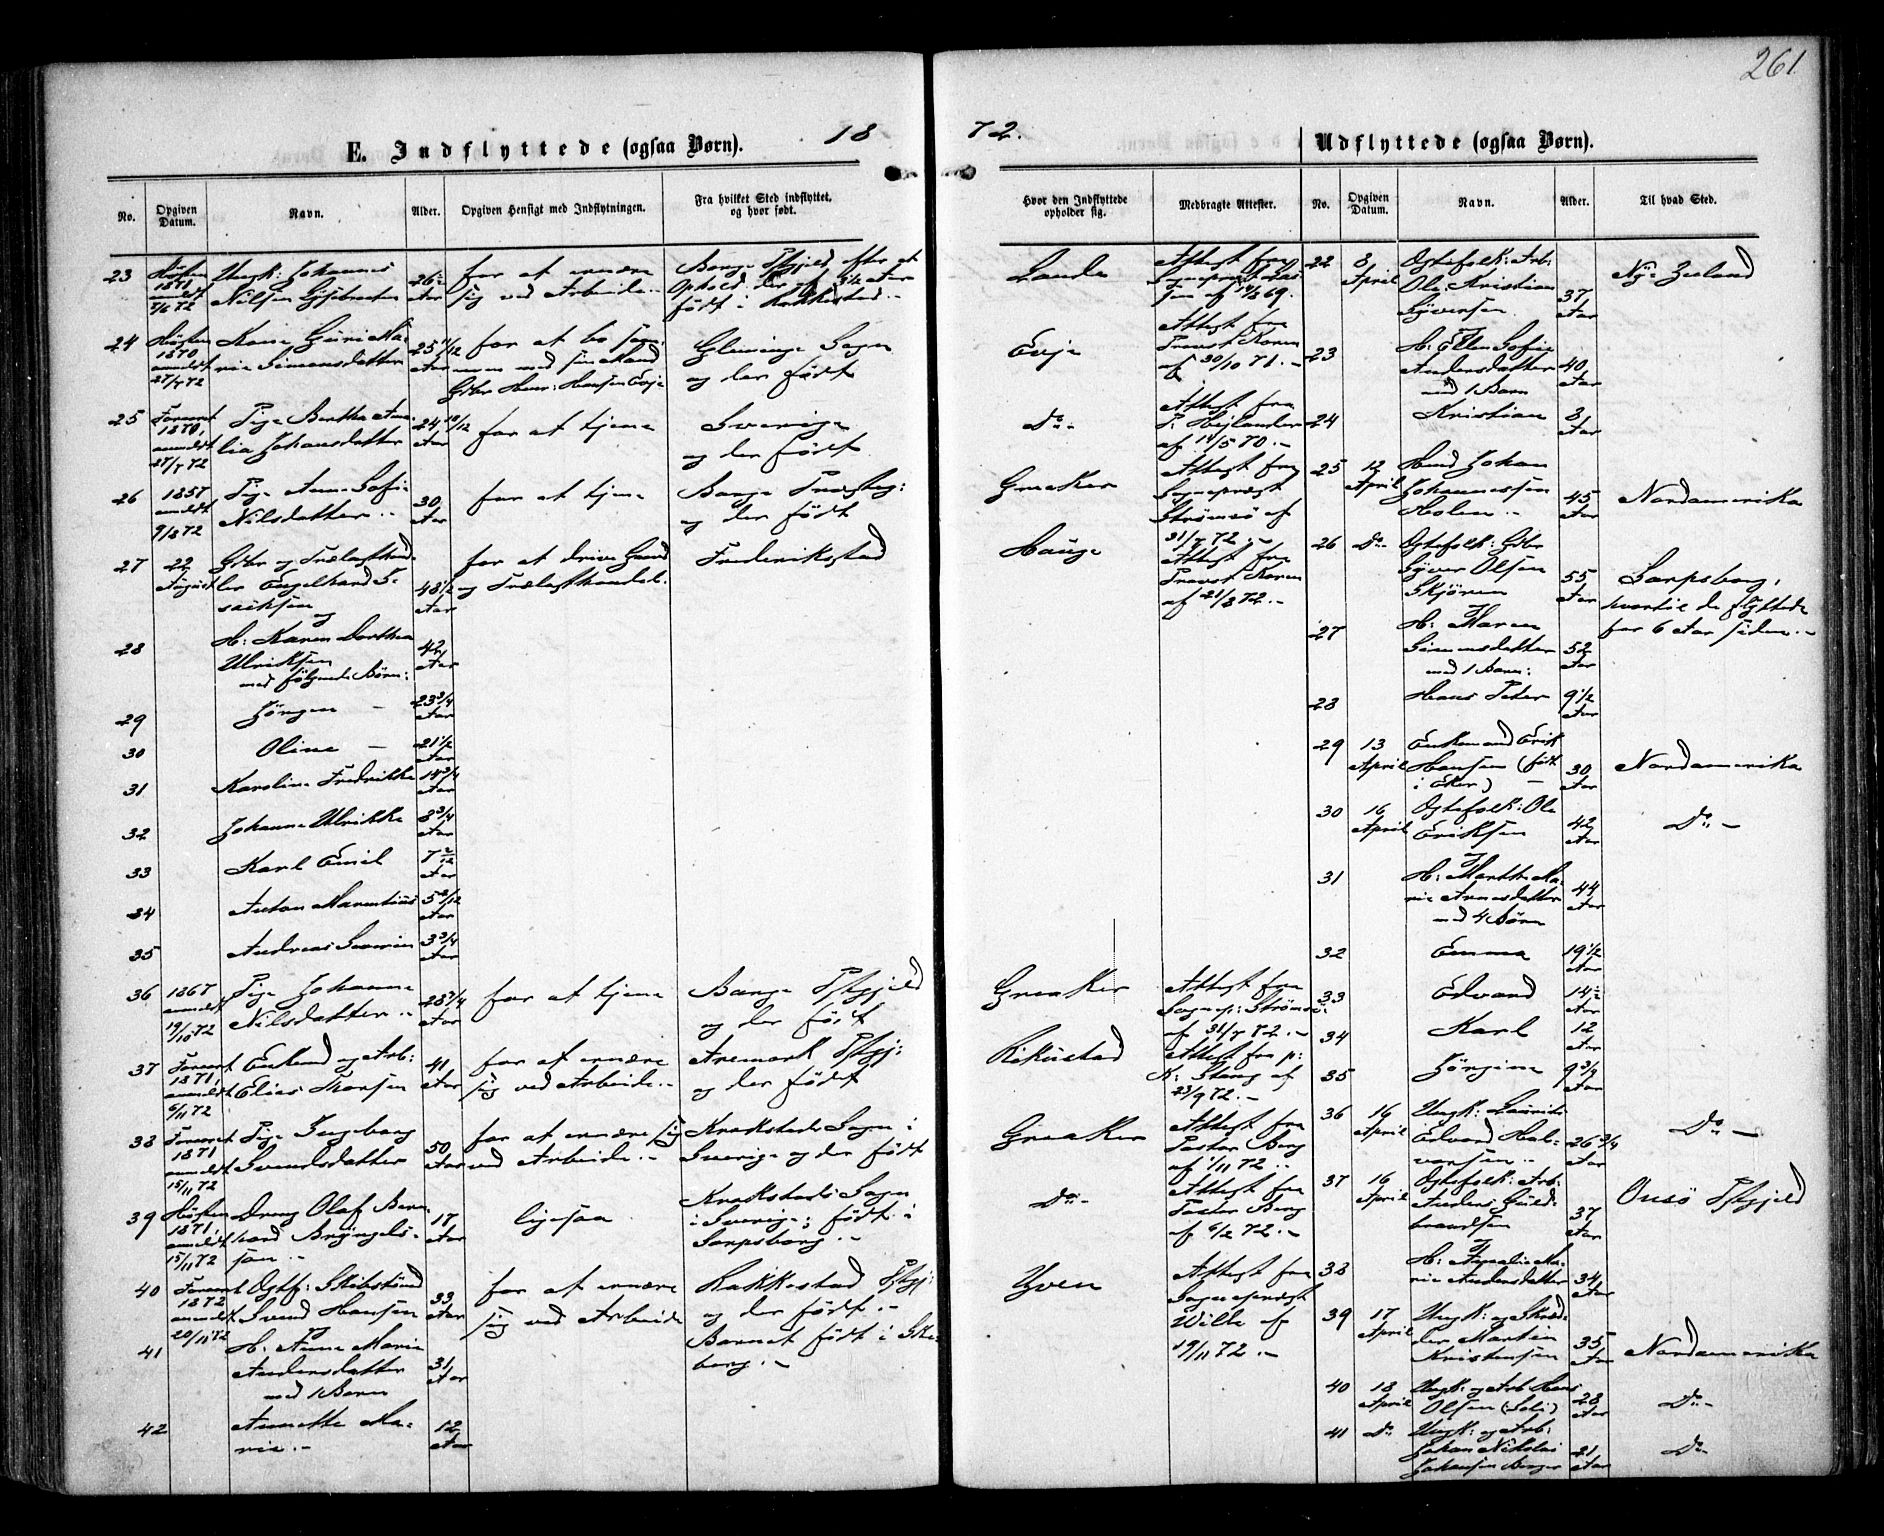 261
18 72.
E. Indflyttede (ogsaa Børn).
Udflyttede (ogsaa Børn).
No.
Opgiven Datum.
Navn.
Alder.
Opgiven Hensigt med Indflytningen.
Fra hvilket Sted indflyttet, og hvor født.
Hvor den Indflyttede opholder sig.
Medbragte Attester.
No.
Opgiven Datum.
Navn.
Alder.
Til hvad Sted.
23 Høsten Ungk: Johannes for at ernære
1871 anmeldt Nilsen 26 Aar sig ved Arbeide.- født i Rakkestad.-
Lande Attest fra
24 Høsten Kone Guri Ma- 25 11/12 for at bo sam- Glemminge Sogn
1870 anmeldt rie Simensdatter Aar men med sin Mand og der født
27/7 72 Gbr Hans Hansen Evje
Evje Attest fra Provst Koren af 30/10 71.-
25 Foraaret Pige Bertha Ama- 24 10/12 for at tjene Sverige
1870, anmeldt lia Johansdatter Aar og der født
27/7 72
Do- Attest fra P. Heilander af 14/5 70.-
26 1857 Pige Anne Sofie 30 for at tjene
anmeldt Nilsdatter.- Aar og der født
9/8 72
Greaker Attest fra Sognepræst Strømsø af 31/7 72.-
27 22 August Gbr og Trælasthand- 48 1/2 for at drive Gaard Frederikstad
ler Engelhard I- Aar og Trælasthandel.
saksen og
Hauge Attest fra Provst Koren af 21/8 72.-
28 H: Karen Dorthea 42
Ulriksen Aar
med følgende Børn:
29 Jørgen - 23 3/4 Aar
30 Oline - 21 1/2 Aar
31 Karoline Fredrikke 14 3/4 Aar
32 Johanne Ulrikke 8 3/4 Aar
33 Karl Emil 7 2/12 Aar
34 Anton Marentius 5 2/12 Aar
35 Andreas Severin 3 3/4 Aar
36 1867 Pige Johanne 28 3/4 for at tjene
anmeldt Nilsdatter.- Aar og der født
19/10 72
Greaker Attest fra Sognep: Strømsø af 31/7 72.-
37 Foraaret Enkemd og Arb: 41 for at ernære Aremark Pstgj:
1871, anmeldt Elias Thorsen Aar sig ved Arbeide.- og der født
6/11 72
Rikustad Attest fra p: K: Stang af 23/9 72.-
38 Foraaret Pige Ingeborg 50 for at ernære sig Krokstads Sogn i
1871 anmeldt Svendsdatter Aar ved Arbeide.- Sverige og der født
15/11 72
Greaker Attest fra Pastor Berg af 1/11 72.-
39 Høsten Dreng Olaf Bern- 17 ligesaa Krokstads Sogn
1871, anmeldt hard Bryngels- Aar i Sverige; født i
15/11 72 son.- Sarpsborg.-
Do- Attest fra Pastor Berg af 6/2 72.-
40 Foraaret Ogtf: Skibstømd 33 for at ernære Rakkestad Pstgj:
1872 anmeldt Svend Hansen Aar sig ved Arbeide og der født.-
20/11 72 Barnet født i Ske-
berg.-
Yven Attest fra Sognepræst Wille af 19/11 72.-
41 H: Anne Marie 31
Andersdatter Aar
med 1 Barn
42 Annette Ma- 12
rie.- Aar
22 8 April Ogtefolk: Arb: Ole Kristian Syversen 37 Aar Ny Zeeland
23 H: Ellen Sofie Andersdatter med 1 Barn 40 Aar
24 Kristian 8 Aar
25 12 April Hmd Johan Johannessen Holen.- 45 Aar Nordamerika
26 Do- Ogtefolk: Gbr Syver Olsen Skjøren 55 Aar Sarpsborg, hvortil de flyttede for 6 Aar siden.-
27 H: Maren Simensdatter med 1 Barn: 52 Aar
28 Hans Peter 9 1/2 Aar
29 13 April Enkemand Erik Hansen (født i Eker) - 30 Aar Nordamerika
30 16 April Ogtefolk: Ole Eriksen 42 Aar Do-
31 H: Marthe Ma- rie Arnesdatter med 4 Børn 44 Aar
32 Emma 19 1/2 Aar
33 Edvard 14 Aar
34 Karl 12 Aar
35 Jørgine 9 3/4 Aar
36 16 April Ungk: Laurits Edvard Hal- vorsen.- 26 3/4 Aar Do-
37 16 April Ogtefolk: Arb: Anders Guld- brandsen 37 Aar Onsø Pstgjeld
38 H: Ma- rie Andersdatter 34 Aar
39 17 April Ungk: og Skræd- der Martin Kristensen 35 Aar Nordamerika
40 18 April Ungk: og Arb Hans Olsen 28 Aar Do-
41 Do Ungk: og Arb: Johan Nikolai Johansen Berger 21 Aar Do-